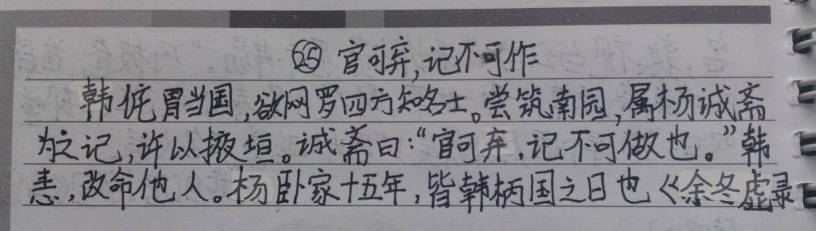 ㉕ 官可弃,记不可作
韩侂胄当国,欲网罗四方知名士。尝筑南园,属杨诚斋
为之记,许以掖垣。诚斋曰:“官可弃,记不可做也。”韩
恚,改命他人。杨卧家十五年,皆韩柄国之日也《余冬虚录